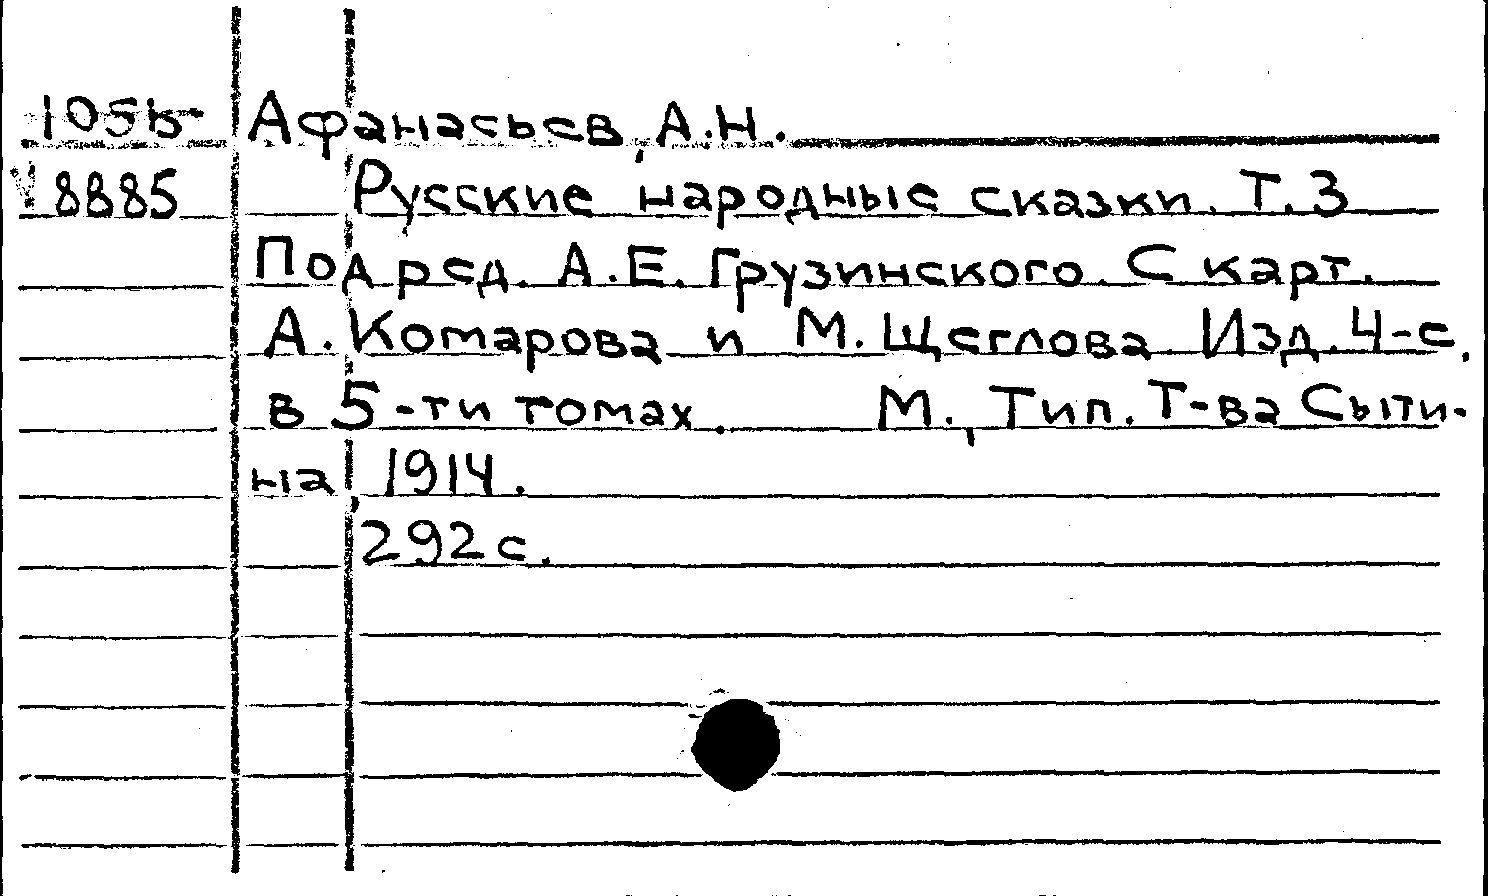 Афанасьев, А.Н.
8885 Русские народные сказки. Т.3
Под ред. А.Е. Грузинского. С карт.
А. Комарова и М. Щеглова Изд. 4-е,
в 5-ти томах. М., Тип. Т-ва Сыти-
на, 1914.
292 с.